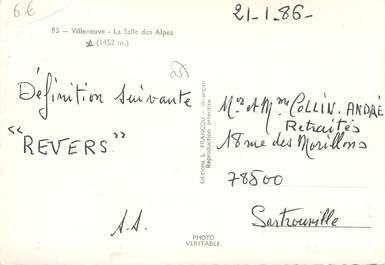 6€
21-1-86-
95 - Villeneuve - La Salle des Alpes
(1452 m.)
Définition suivante
"REVERS."
A.A.
Editions L. FRANCOU - Briançon
Reproduction interdite
Mr et Mme COLLIN. ANDRÉ
Retraités
18 rue des Morillons
78500
Sartrouville
PHOTO
VERITABLE